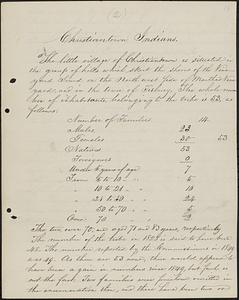 (2)
Christiantown Indians.
The little village of Christiantown is situated in
the group of hills which skirt the shore of the Vine
yard Sound on the North west side of Martha's Vine
yard, and in the town of Tisbury. The whole num
ber of inhabitants belonging to the tribe is 53, as
follows:
Number of Families 14.
Males 23
Females 30 53
Natives 53
Foreigners 0
Under 5 years of age 7
From 5 to 10 " 5
" 10 to 21 "
" 21 to 50 " 24
" 50 to 70 " 6
Over 70 "
The two over 70, are aged 71 & years, respectively
The number of the tribe in 18 is said to have been
48. The number reported by the Commissioners in 1849
was 49. As there are 53 now, there would appear to
have been a gain in numbers since 1849, but such is
not the fact. families were omitted in
the enumeration then, and there have been two